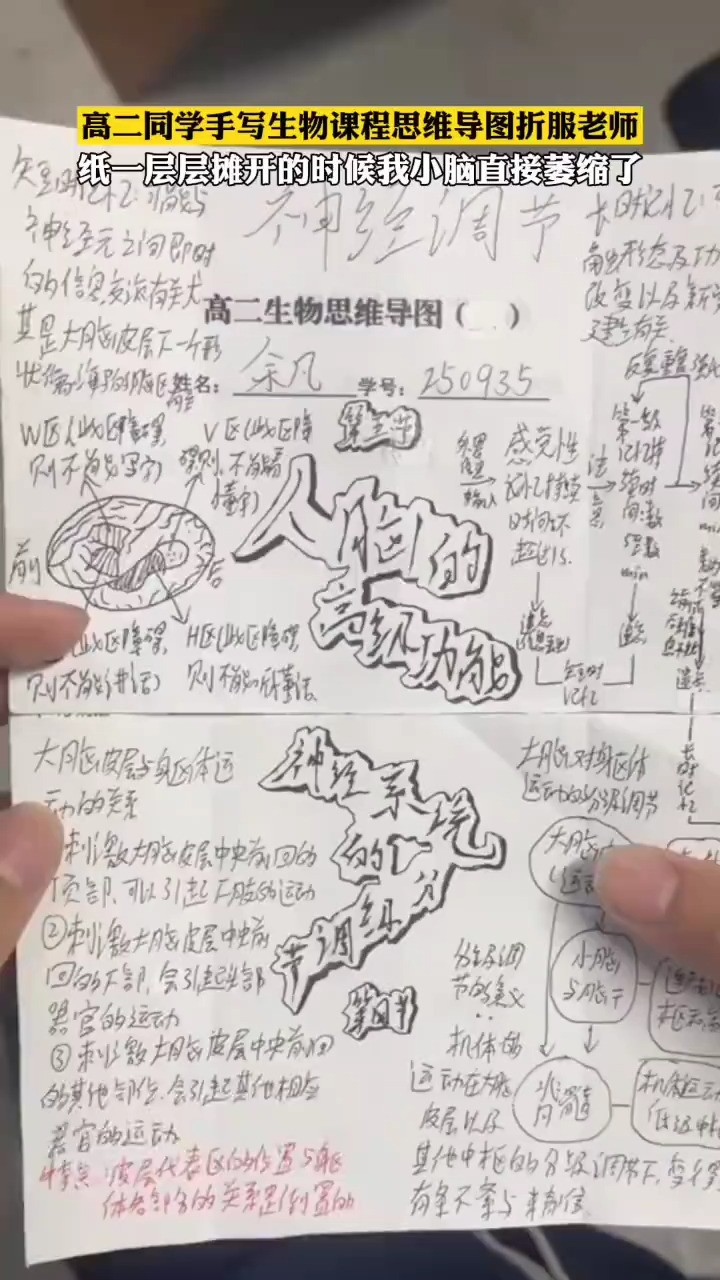 高二同学手写生物课程思维导图折服老师
纸一层层摊开的时候我小脑直接萎缩了
神经调节
高二生物思维导图（ ）
姓名：余凡 学号：250935
短时记忆：可能与
神经元之间即时
的信息交流有关尤
其是大脑皮层下一个形
状像海马的脑区有关
长时记忆：
触形态及功
改变以及新
建立有关
W区（此区障碍，
则不能写字）
V区（此区障
碍则，不能看
懂字）
前
后
此区障碍，
则不能讲话）
H区（此区障碍，
则不能听懂话
人脑的
高级功能
外界
信息
输入
感觉性
记忆持续
时间不
超过1s
注意
遗忘
短时
记忆
第一级
记忆持
续时
间数
min
遗忘
大脑皮层与身体运
动的关系
刺激大脑皮层中央前回的
顶部，可以引起下肢的运动
②刺激大脑皮层中央前
回的下部，会引起头部
器官的运动
③刺激大脑皮层中央前回
的其他部位，会引起其他相应
器官的运动
特点：皮层代表区的位置与躯
体各部分的关系是倒置的
神经系统
的分
级调节
第四节
大脑对身体
运动的分级调节
大脑
小脑
与脑干
脊髓
分级调
节的意义
机体的
运动在大脑
皮层以及
其他中枢的分级调节下，变得
有条不紊与精准